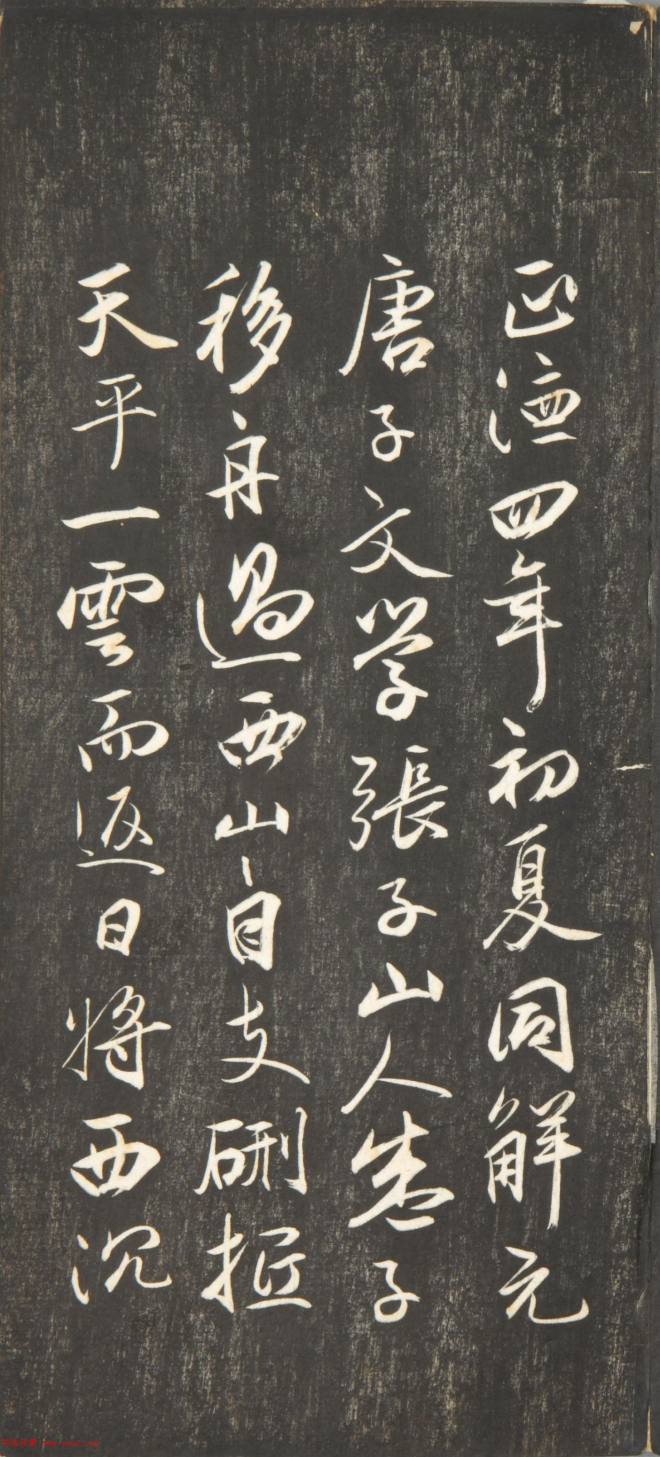 正德四年初夏同解元
唐子文学張子山人朱子
移舟過西山自支硎抵
天平一雲而返日将西沉